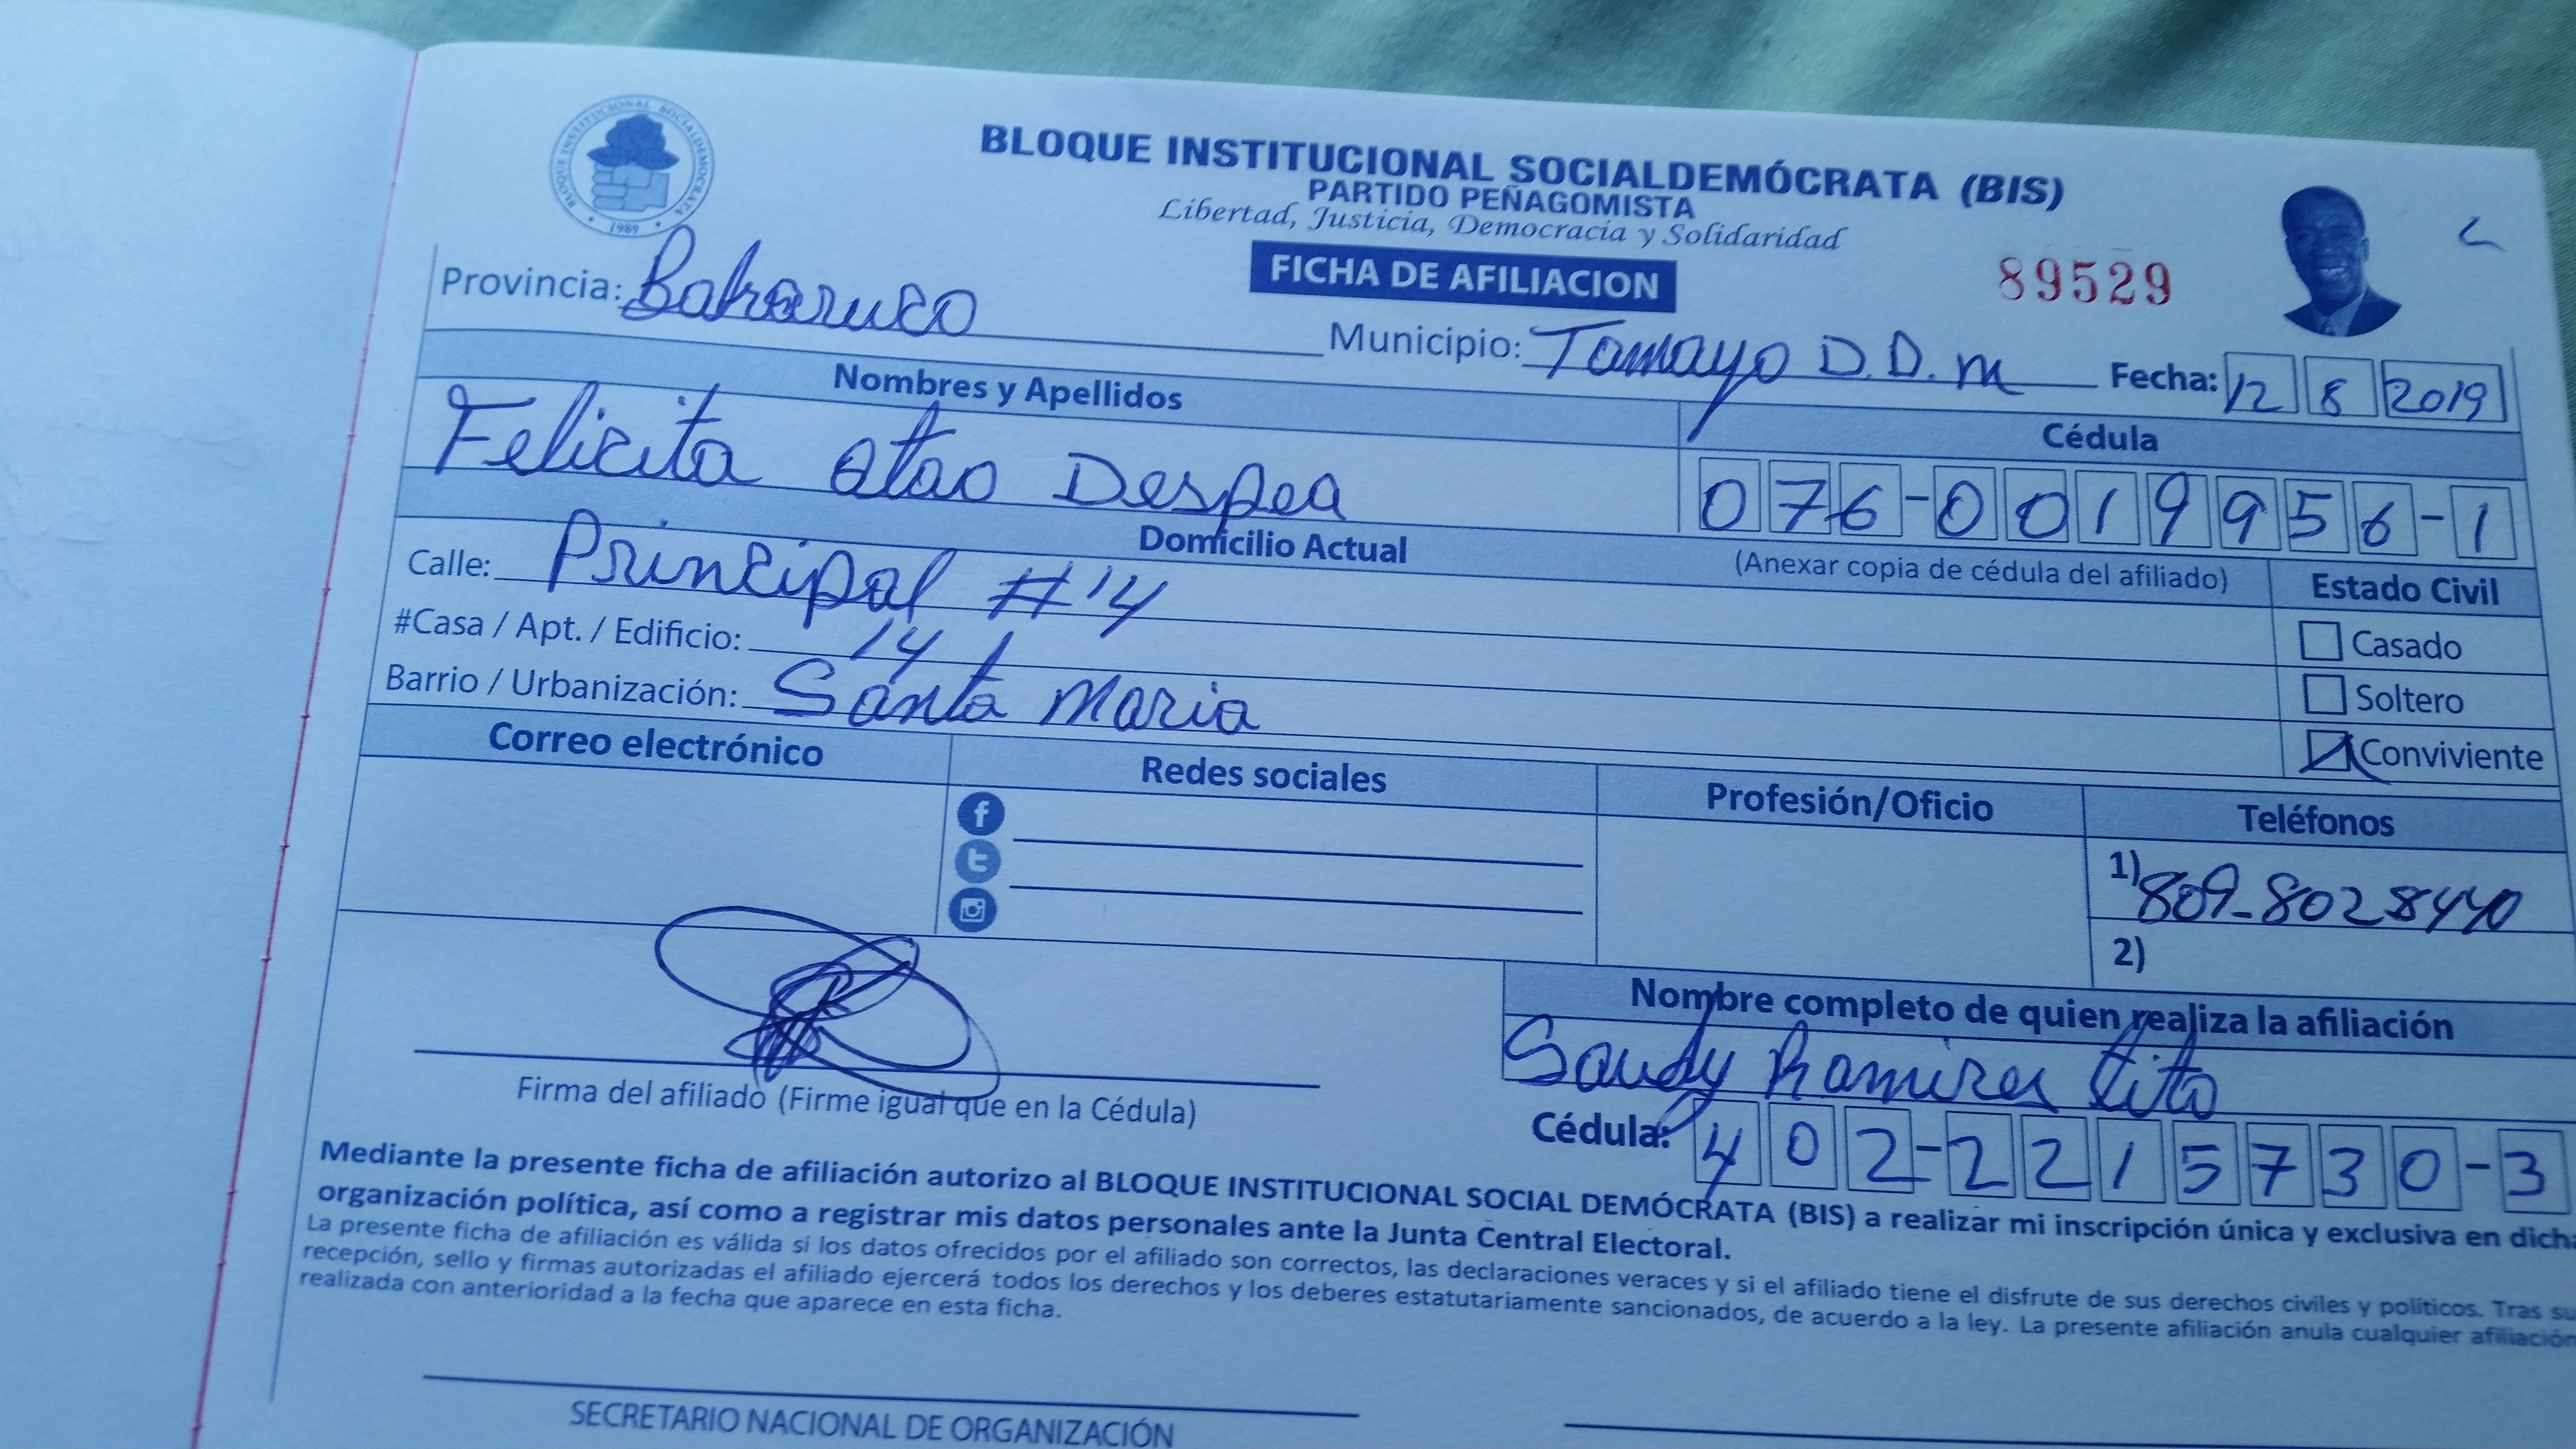 BLOQUE INSTITUCIONAL SOCIALDEMOCRATA
1989
BLOQUE INSTITUCIONAL SOCIALDEMÓCRATA (BIS)
PARTIDO PEÑAGOMISTA
Libertad, Justicia, Democracia y Solidaridad
FICHA DE AFILIACION
89529
Provincia: Bahoruco
Municipio: Tamayo D.D.M
Fecha: 12 8 2019
Nombres y Apellidos
Cédula
Felicita atao Despea
076-0019956-1
Domicilio Actual
(Anexar copia de cédula del afiliado)
Estado Civil
Calle: Principal #14
Casado
#Casa / Apt. / Edificio: 14
Soltero
Barrio / Urbanización: Santa Maria
Conviviente
Correo electrónico
Redes sociales
Profesión/Oficio
Teléfonos
1) 809-8028440
2)
Nombre completo de quien realiza la afiliación
Sandy Ramirez
Firma del afiliado (Firme igual que en la Cédula)
Cédula: 402-2215730-3
Mediante la presente ficha de afiliación autorizo al BLOQUE INSTITUCIONAL SOCIAL DEMÓCRATA (BIS) a realizar mi inscripción única y exclusiva en dicha
organización política, así como a registrar mis datos personales ante la Junta Central Electoral.
La presente ficha de afiliación es válida si los datos ofrecidos por el afiliado son correctos, las declaraciones veraces y si el afiliado tiene el disfrute de sus derechos civiles y políticos. Tras su
recepción, sello y firmas autorizadas el afiliado ejercerá todos los derechos y los deberes estatutariamente sancionados, de acuerdo a la ley. La presente afiliación anula cualquier afiliación
realizada con anterioridad a la fecha que aparece en esta ficha.
SECRETARIO NACIONAL DE ORGANIZACIÓN